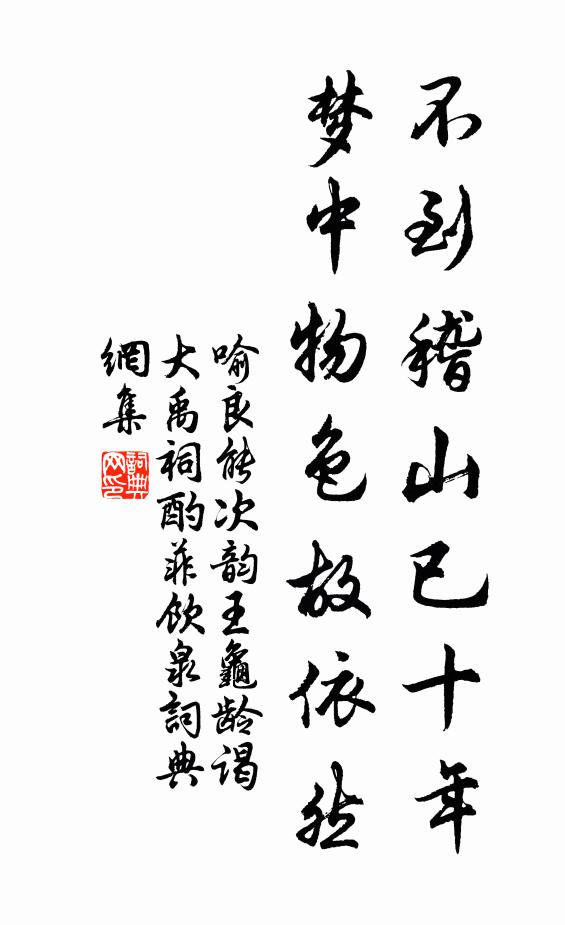 不到稽山已十年
梦中物色故依然
喻良能次韵王龜龄谒
大禹祠酌菲饮泉詞典
網集
詞典
网印